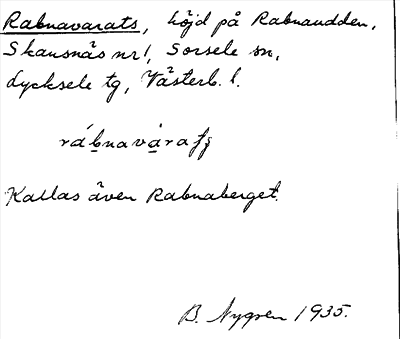 Rabnavarats, höjd på Rabnaudden,
Skansnäs nr 1, Sorsele sn,
Lycksele tg, Västerb. l.
Kallas även Rabnaberget.
B. Nygren 1935.